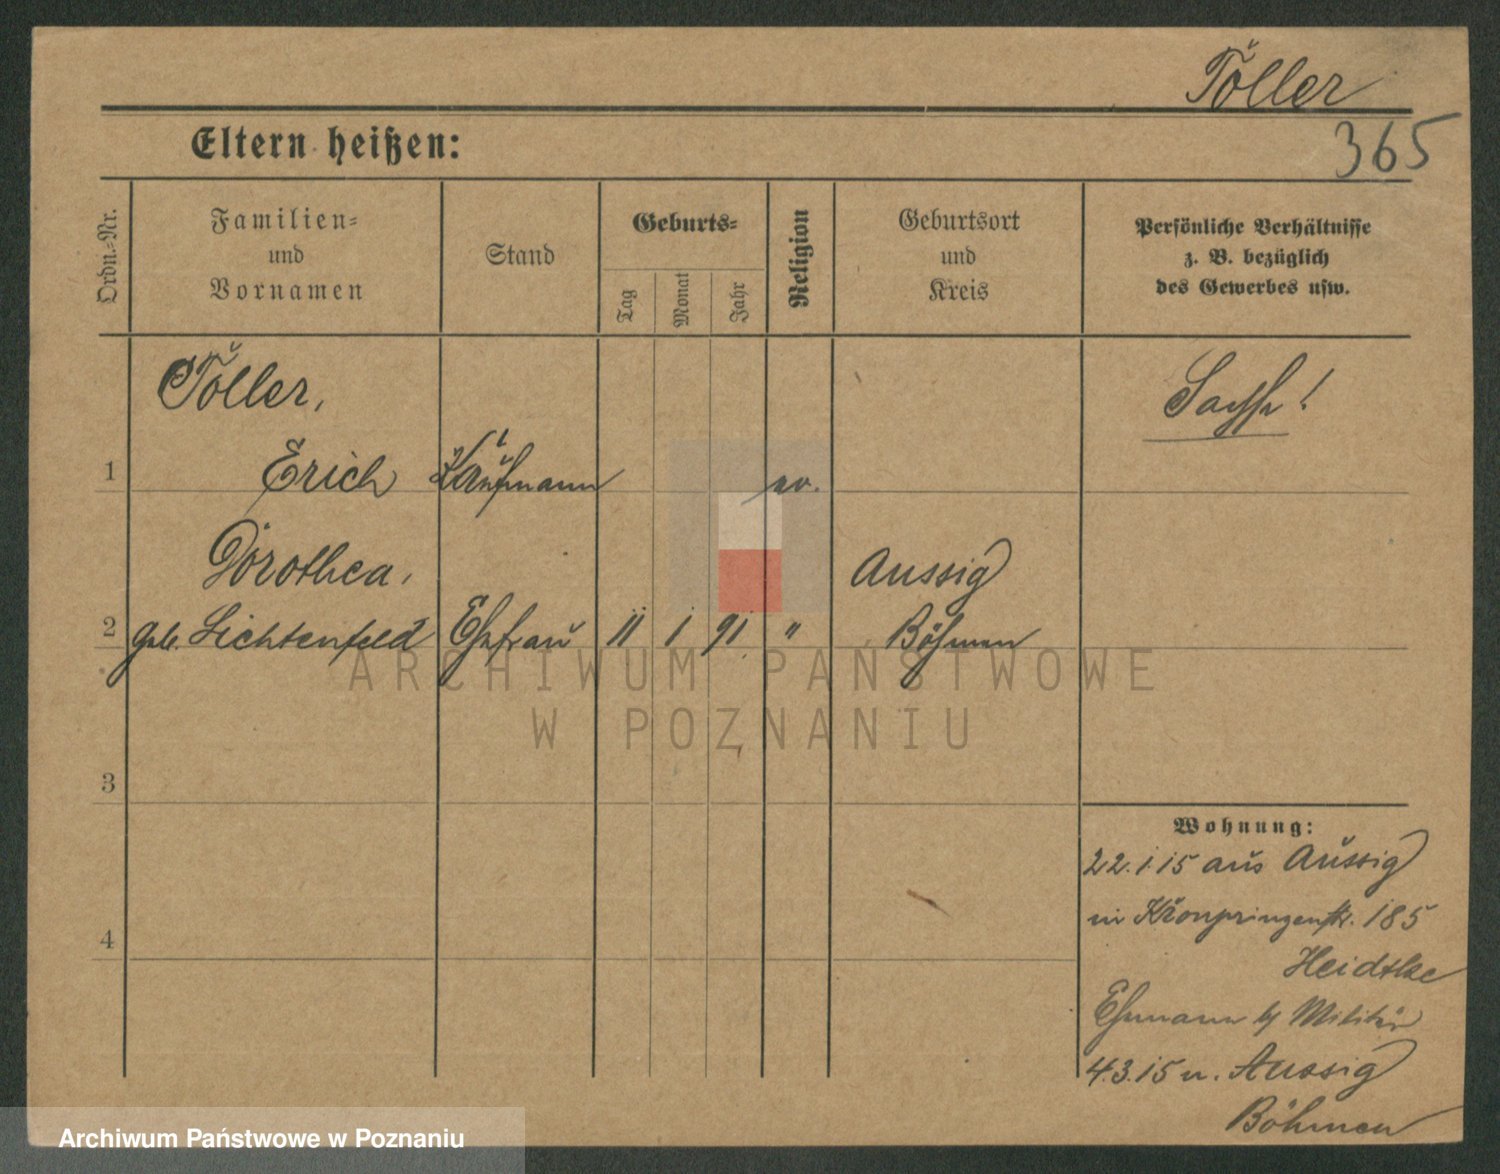 Töller
365
Eltern heißen:
Ordn.-Nr.
Familien-
und
Vornamen
Stand
Geburts-
Tag
Monat
Jahr
Religion
Geburtsort
und
Kreis
Persönliche Verhältnisse
z. B. bezüglich
des Gewerbes usw.
Töller,
Sachse!
1 Erich Kaufmann ev.
Dorothea, Aussig
2 geb. Lichtenfeld Ehefrau 11 1 91 " Böhmen
ARCHIWUM PAŃSTWOWE
W POZNANIU
3
Wohnung:
22.1.15 aus Aussig
in Kronprinzenstr. 185
4
Heidtke
Ehemann b/ Militär
4.3.15 n. Aussig
Böhmen
Archiwum Państwowe w Poznaniu